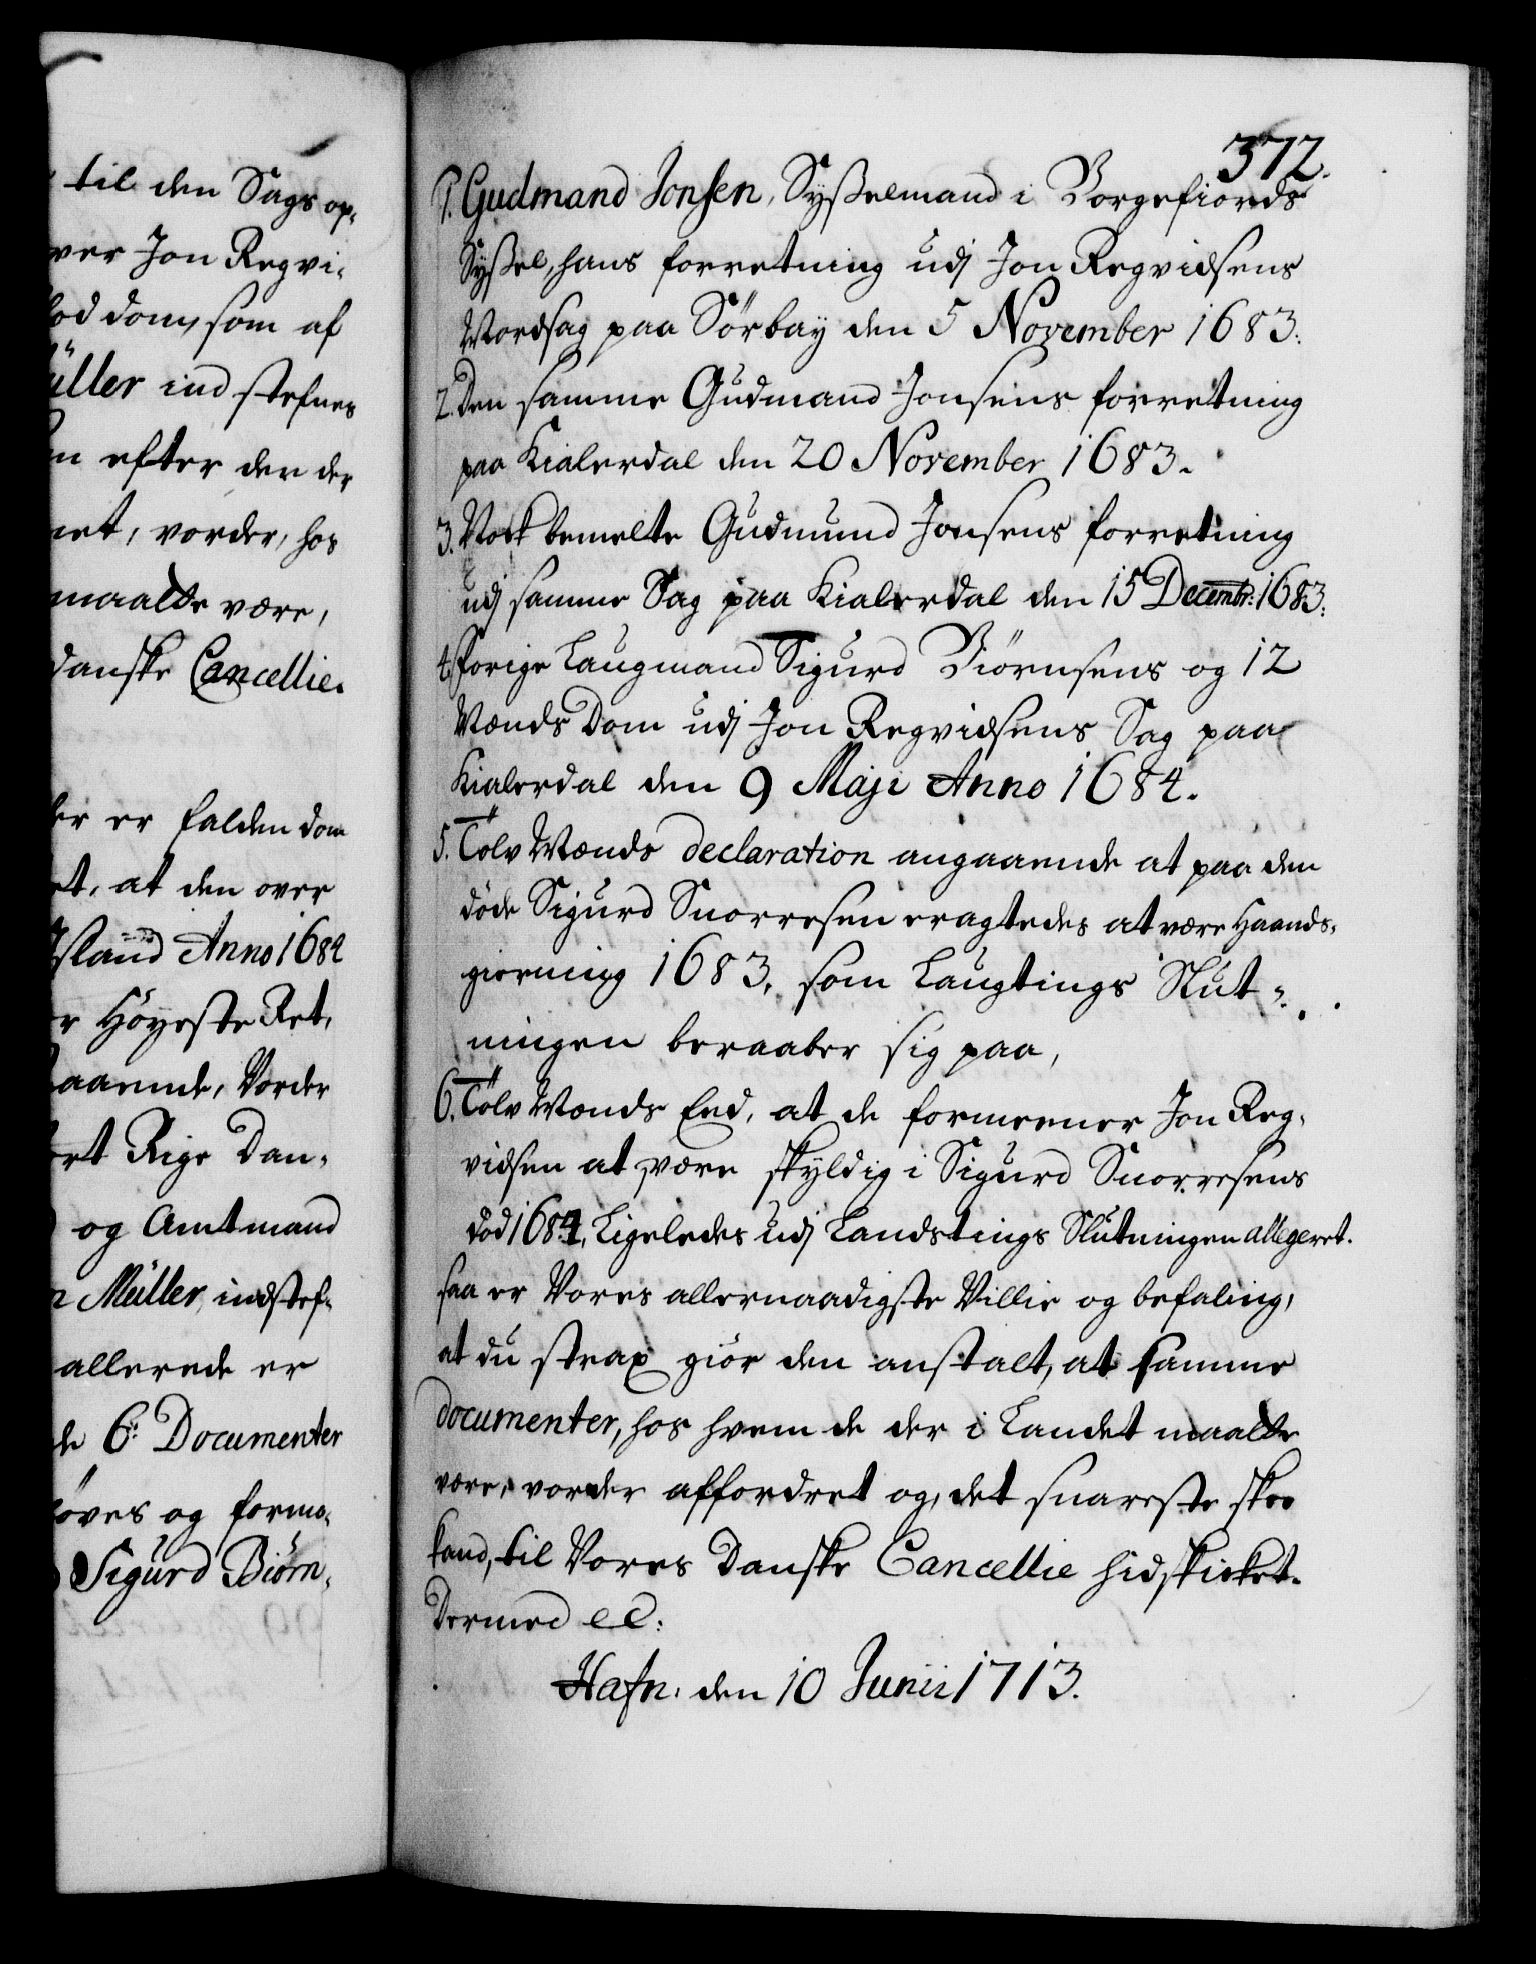 til den Sags op-
ver Jon Regvi-
od dom, som af
üller ind stefnes
n efter den der
et, vorder, hos
maatte være,
danske Cancellie.
er er falden dom
et, at den over
Island Anno 1684
r Höyeste Ret,
aaende, Vorder
ort Rige Dan-
og Amtmand
n Müller, indstef-
allerede er
de 6: Documenter
öves og forma-
Sigurd Biörn-
372.
1. Gudmand Jonsen, Sysselmand i Borgefiords
Syssel, hans forretning udj Jon Regvidsens
Mordsag paa Sörbay den 5 November 1683.
2. Den samme Gudmand Jonsens forretning
paa Kialerdal den 20 November 1683.
3. Velbemelte Gudmund Jonsens forretning
udj samme Sag paa Kialerdal den 15 Decembr: 1683.
4. Forige Laugmand Sigurd Biörnsens og 12
Mænds Dom udj Jon Regvidsens Sag paa
Kialerdal den 9 Maji Anno 1684.
5. Tolv Mænds declaration angaaende at paa den
döde Sigurd Snorresen eragtedes at være Haands-
gierning 1683, som Laugtings Slut-
ningen beraaber sig paa,
6. Tolv Mænds Eed, at de formeener Jon Reg-
vidsen at være skyldig i Sigurd Snorresens
död 1684, Ligeledes udj Landstings Slutningen allegeret.
saa er Vores allernaadigste Villie og befaling,
at du strax giör den anstalt, at samme
documenter, hos hvem de der i Landet maatte
være, vorder affordret og, det snareste skee
kand, til Vores Danske Cancellie hidskicket.
Dermed etc:
Hafn: den 10 Junii 1713.